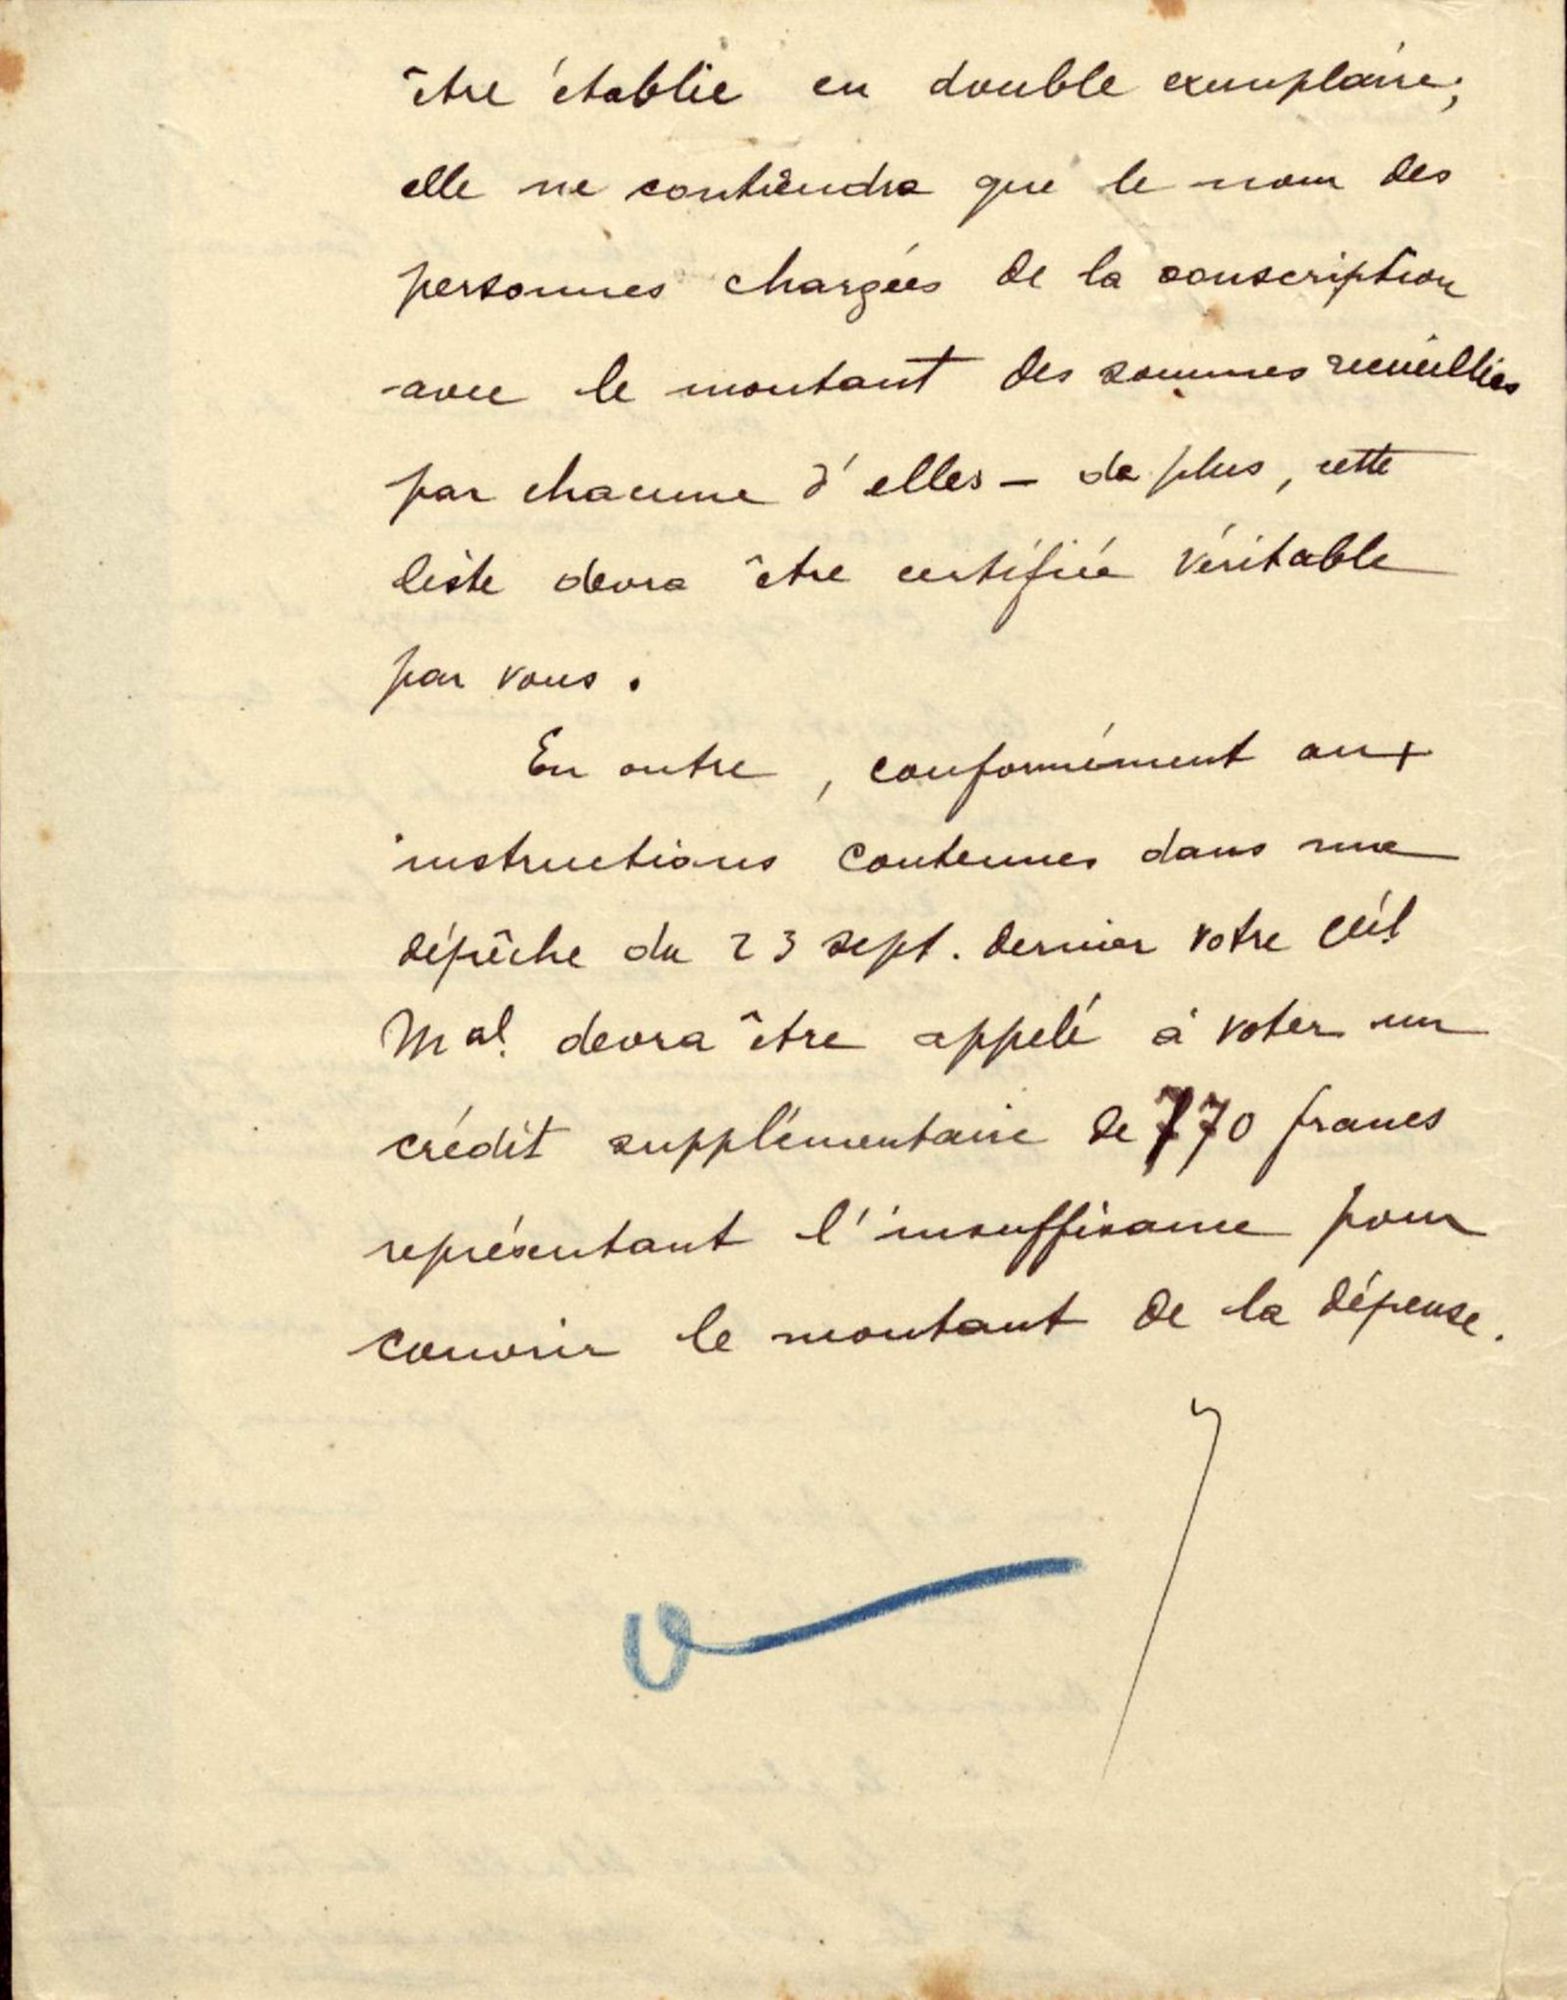 être établie en double exemplaire;
elle ne contiendra que le nom des
personnes chargées de la souscription
avec le montant des sommes recueillies
par chacune d'elles - de plus, cette
liste devra être certifiée véritable
par vous.
En outre, conformément aux
instructions contenues dans ma
dépêche du 23 sept. dernier votre Ceil
Mal. devra être appelé à voter un
crédit supplémentaire de 770 francs
représentant l'insuffisance pour
couvrir le montant de la dépense.